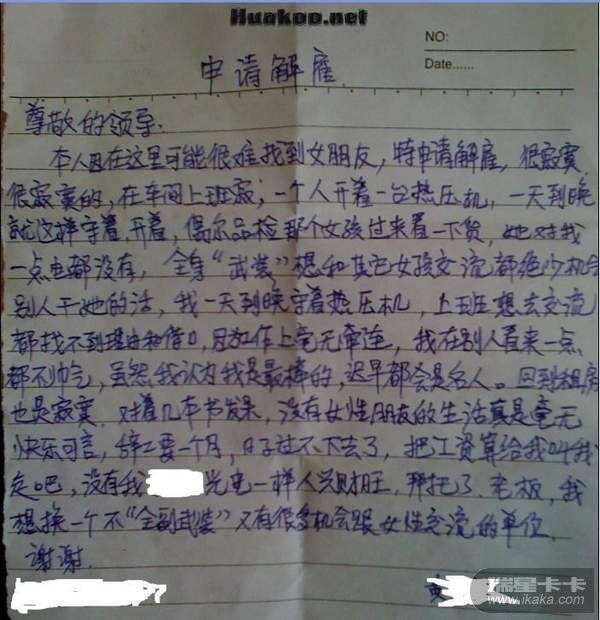 Huakoo.net
NO:
Date......
申请解雇
尊敬的领导.
本人因在这里可能很难找到女朋友，特申请解雇，很寂寞
很寂寞的，在车间上班寂，一个人开着一台热压机，一天到晚
就这样守着.开着，偶尔品检那个女孩过来看一下货，她对我
一点电都没有，全身“武装”想和其它女孩交流都绝少机会
别人干她的活，我一天到晚守着热压机，上班想去交流
都找不到理由和借口，因工作上毫无牵连，我在别人看来一点
都不帅气，虽然我认为我是最棒的，迟早都会是名人。回到租房
也是寂寞.对着几本书发呆，没有女性朋友的生活真是毫无
快乐可言，辞工要一个月，日子过不下去了，把工资算给我叫我
走吧，没有我 光电一样人兴财旺，那把了.老板，我
想换一个不“全副武装”又有很多机会跟女性交流的单位.
谢谢.
黄
瑞星卡卡
www.ikaka.com